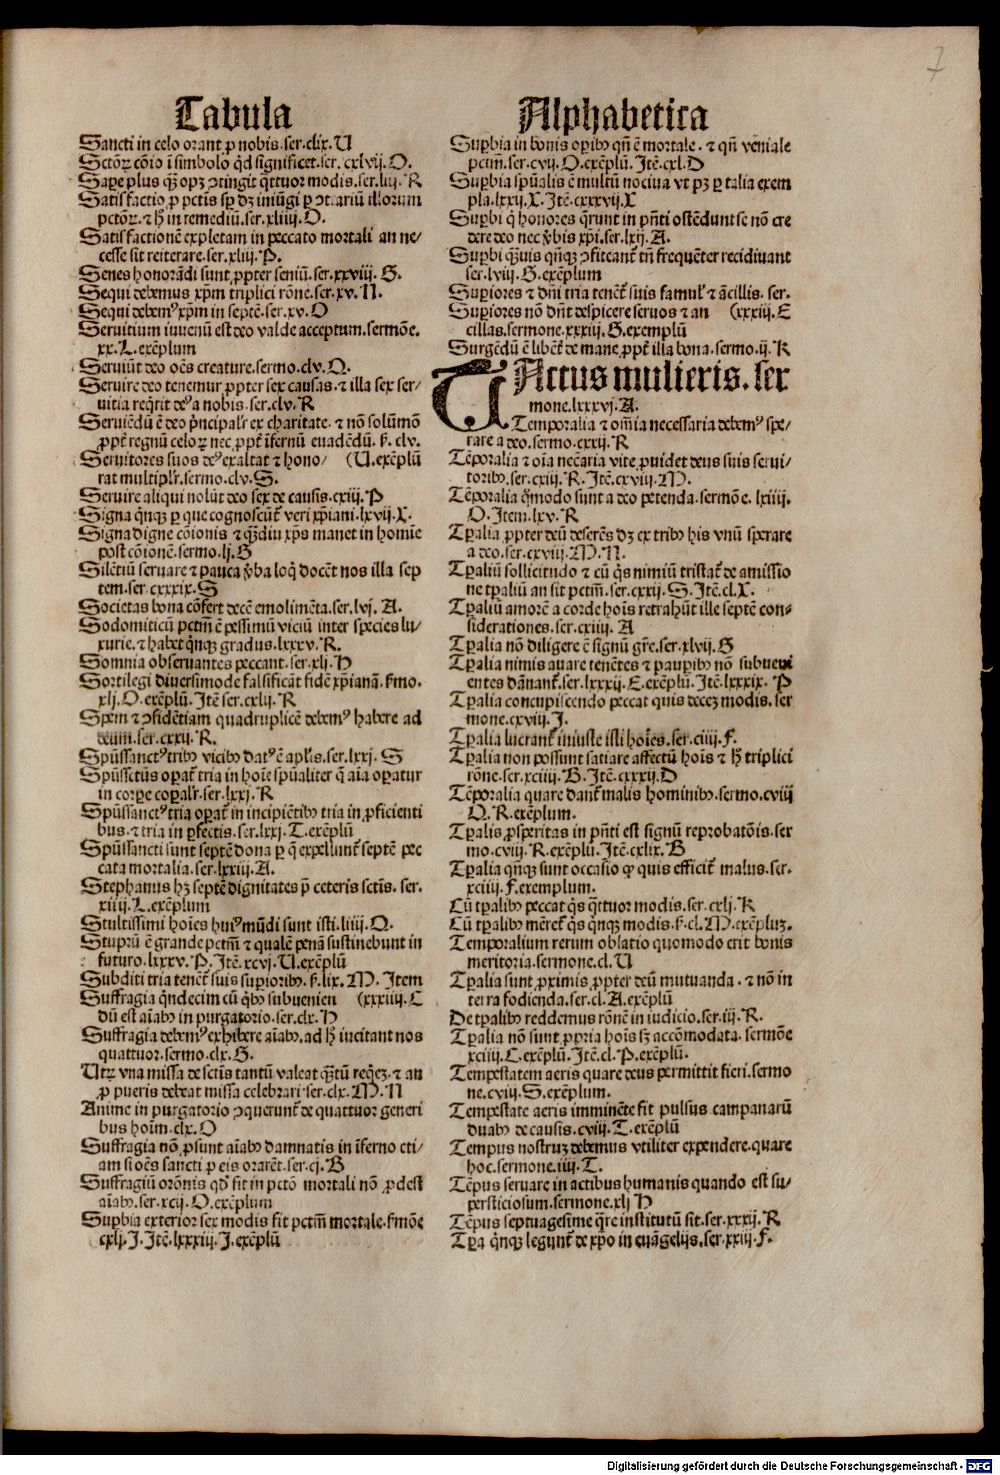 7
Tabula
Sancti in celo orant ꝓ nobis.ser.clix.U
Sctōꝝ cōio ī simbolo qd significet.ser.cxlvij.O.
Saꝑe plus qꝫ opꝫ ↄtingit qͥttuor modis.ser.liij.R
Satisfactio ꝓ pctīs sꝑ dꝫ iniūgi ꝑ ↄtrariū illorum
pctōꝝ.⁊ hͥ in remediū.ser.xliiij.O.
Satisfactionē expletam in peccato mortali an ne/
cesse sit reiterare.ser.xliij.P.
Senes honorādi sunt ꝓpter seniū.ser.xxviij.G.
Sequi debemus xp̄m triplici rōne.ser.xv.N.
Sequi debemꝰ xp̄m in septē.ser.xv.O
Seruitium iuuenū est deo valde acceptum.sermōe.
xx.L.exēplum
Seruiūt deo oēs creature.sermo.clv.Q.
Seruire deo tenemur ꝓpter sex causas.⁊ illa sex ser/
uitia reqͥrit deꝰ a nobis.ser.clv.R
Seruiēdū ē deo pͥncipalr̄ ex charitate.⁊ nō solūmō
ꝓpt̄ regnū celoꝝ nec ꝓpt̄ īfernū euadēdū.ẜ.clv.
Seruitores suos deꝰ exaltat ⁊ hono/ (U.exēplū
rat multiplr̄.sermo.clv.S.
Seruire aliqui nolūt deo sex de causis.cxiij.P
Signa qͥnqꝫ ꝑ que cognoscūt̄ veri xp̄iani.lxvij.X.
Signa digne cōionis ⁊ qͣdiu xp̄s manet in homīe
post cōionē.sermo.lj.G
Silētiū seruare ⁊ pauca v̄ba loqͥ docēt nos illa sep
tem.ser.cxxxix.S
Societas bona cōfert decē emolimēta.ser.lvj.A.
Sodomiticū pctm̄ ē pessimū viciū inter species lu/
xurie.⁊ habet qͥnqꝫ gradus.lxxxv.R.
Somnia obseruantes peccant.ser.xlj.H
Sortilegi diuersimode falsificāt fidē xp̄ianā.ẜmo.
xlj.O.exēplū.Itē ser.cxlij.R
Spem ⁊ ↄfidētiam quadruplicē debemꝰ habere ad
deum.ser.cxxij.R.
Spūssanctꝰ tribꝰ vicibꝰ datꝰ ē apl̄is.ser.lxxj.S
Spūssctūs oꝑat̄ tria in hoīe spūaliter q̄ aīa oꝑatur
in corꝑe coꝑalr̄.ser.lxxj.R
Spūssanctꝰ tria oꝑat̄ in incipiētibꝰ tria in ꝓficienti
bus.⁊ tria in ꝑfectis.ser.lxxj.T.exēplū
Spūssancti sunt septē dona ꝑ q̄ expellunt̄ septē pec
cata mortalia.ser.lxxiij.A.
Stephanus hꝫ septē dignitates p̄ ceteris sctīs.ser.
xiiij.L.exēplum
Stultissimi hoīes huiꝰ mūdi sunt isti.liiij.Q.
Stuprū ē grande pctm̄ ⁊ qualē penā sustinebunt in
futuro.lxxxv.P.Itē.xcvj.U.exēplū
Subditi tria tenēt̄ suis suꝑioribꝰ.ẜ.lix.M.Item
Suffragia qͥndecim cū qͥbꝰ subuenien (xxxiiij.C
dū est aīabꝰ in purgatorio.ser.clx.H
Suffragia debemꝰ exhibere aīabꝰ.ad hͥ incitant nos
quattuor.sermo.clx.G.
Utꝝ vna missa de sctīs tantū valeat qͣtū reqͥeꝫ.⁊ an
ꝓ pueris debeat missa celebrari.ser.clx.M.N
Anime in purgatorio ↄquerunt̄ de quattuor generi
bus hoīm.clx.O
Suffragia nō ꝓsunt aīabꝰ damnatis in īferno eti/
am si oēs sancti ꝓ eis orarēt.ser.cj.B
Suffragiū orōnis qd̓ fit in pctō mortali nō ꝓdest
aīabꝰ.ser.xcij.O.exēplum
Suꝑbia exterior sex modis fit pctm̄ mortale.ẜmōe
cxlj.J.Itē.lxxxiij.J.exēplū
Alphabetica
Suꝑbia in bonis oꝑibꝰ qn̄ ē mortale.⁊ qn̄ veniale
pctm̄.ser.cvij.O.exēplū.Itē.cxl.D
Suꝑbia spūalis ē multū nociua vt pꝫ ꝑ talia exem
pla.lxxij.X.Itē.cxxxvij.X
Suꝑbi qͥ honores qͣrunt in pn̄ti ostēdunt se nō cre
dere deo nec v̄bis xp̄i.ser.lxij.A.
Suꝑbi qͣuis qn̄qꝫ ↄfiteant̄ tn̄ frequēter recidiuant
ser.lviij.G.exēplum
Suꝑiores ⁊ dn̄i tria tenēt̄ suis famul̓ ⁊ ācillis.ser.
Suꝑiores nō dn̄t despicere seruos ⁊ an (xxxiij.E
cillas.sermone.xxxiij.G.exemplū
Surgēdū ē libēt̄ de mane ꝓpt̄ illa bona.sermo.ij.R
TActus mulieris.ser
mone.lxxxvj.A.
Temporalia ⁊ om̄ia necessaria debemꝰ spe/
rare a deo.sermo.cxxij.R
Tēporalia ⁊ oīa necāria vite ꝓuidet deus suis serui/
toribꝰ.ser.cxiij.R.Itē.cxviij.M.
Tēporalia qͦmodo sunt a deo petenda.sermōe.lxiiij.
O.Item.lxv.R
Tꝑalia ꝓpter deū deserēs dꝫ ex tribꝰ his vnū sperare
a deo.ser.cxviij.M.N.
Tꝑaliū sollicitudo ⁊ cū qͥs nimiū tristat̄ de amissio
ne tꝑaliū an sit pctm̄.ser.cxxij.S.Itē.cl.X.
Tꝑaliū amorē a corde hoīs retrahūt ille septē con-
siderationes.ser.cxiiij.A
Tꝑalia nō diligere ē signū grē.ser.xlvij.G
Tꝑalia nimis auare tenētes ⁊ pauꝑibꝰ nō subueni
entes dānant̄.ser.lxxxij.E.exēplū.Itē.lxxxix.P
Tꝑalia concupiscendo peccat quis deceꝫ modis.ser
mone.cxviij.J.
Tꝑalia lucrant̄ iniuste isti hoīes.ser.ciiij.F.
Tꝑalia non possunt satiare affectū hoīs ⁊ hͥ triplici
rōne.ser.xciiij.B.Itē.cxxxij.D
Tēporalia quare dant̄ malis hominibꝰ.sermo.cviij
Q.R.exemplum.
Tꝑalis ꝓsperitas in pn̄ti est signū reprobatōis.ser
mo.cviij.R.exēplū.Itē.cxlix.B
Tꝑalia qn̄qꝫ sunt occasio ꝙ quis efficit̄ malus.ser.
xciiij.F.exemplum.
Cū tꝑalibꝰ peccat qͥs qͣttuor modis.ser.cxlj.K
Cū tꝑalibꝰ mēret̄ qͥs qͥnqꝫ modis.ẜ.cl.M.exēpluꝫ.
Temporalium rerum oblatio quomodo erit bonis
meritoria.sermone.cl.U
Tꝑalia sunt ꝓximis ꝓpter deū mutuanda.⁊ nō in
terra fodienda.ser.cl.A.exēplū
De tꝑalibꝰ reddemus rōnē in iudicio.ser.iij.R.
Tꝑalia nō sunt ꝓpria hoīs sꝫ accōmodata.sermōe
xciiij.C.exēplū.Itē.cl.P.exēplū.
Tempestatem aeris quare deus permittit fieri.sermo
ne.cviij.S.exēplum.
Tempestate aeris imminēte fit pulsus campanarū
duabꝰ de causis.cviij.T.exēplū
Tempus nostruꝫ debemus vtiliter expendere.quare
hoc.sermone.iiij.T.
Tēpus seruare in actibus humanis quando est su/
persticiosum.sermone.xlj H
Tēpus septuagesime qͣre institutū sit.ser.xxxij.R
Tꝑa qͥnqꝫ legunt̄ de xp̄o in euāgelijs.ser.xxiij.F.
Digitalisierung gefördert durch die Deutsche Forschungsgemeinschaft - DFG